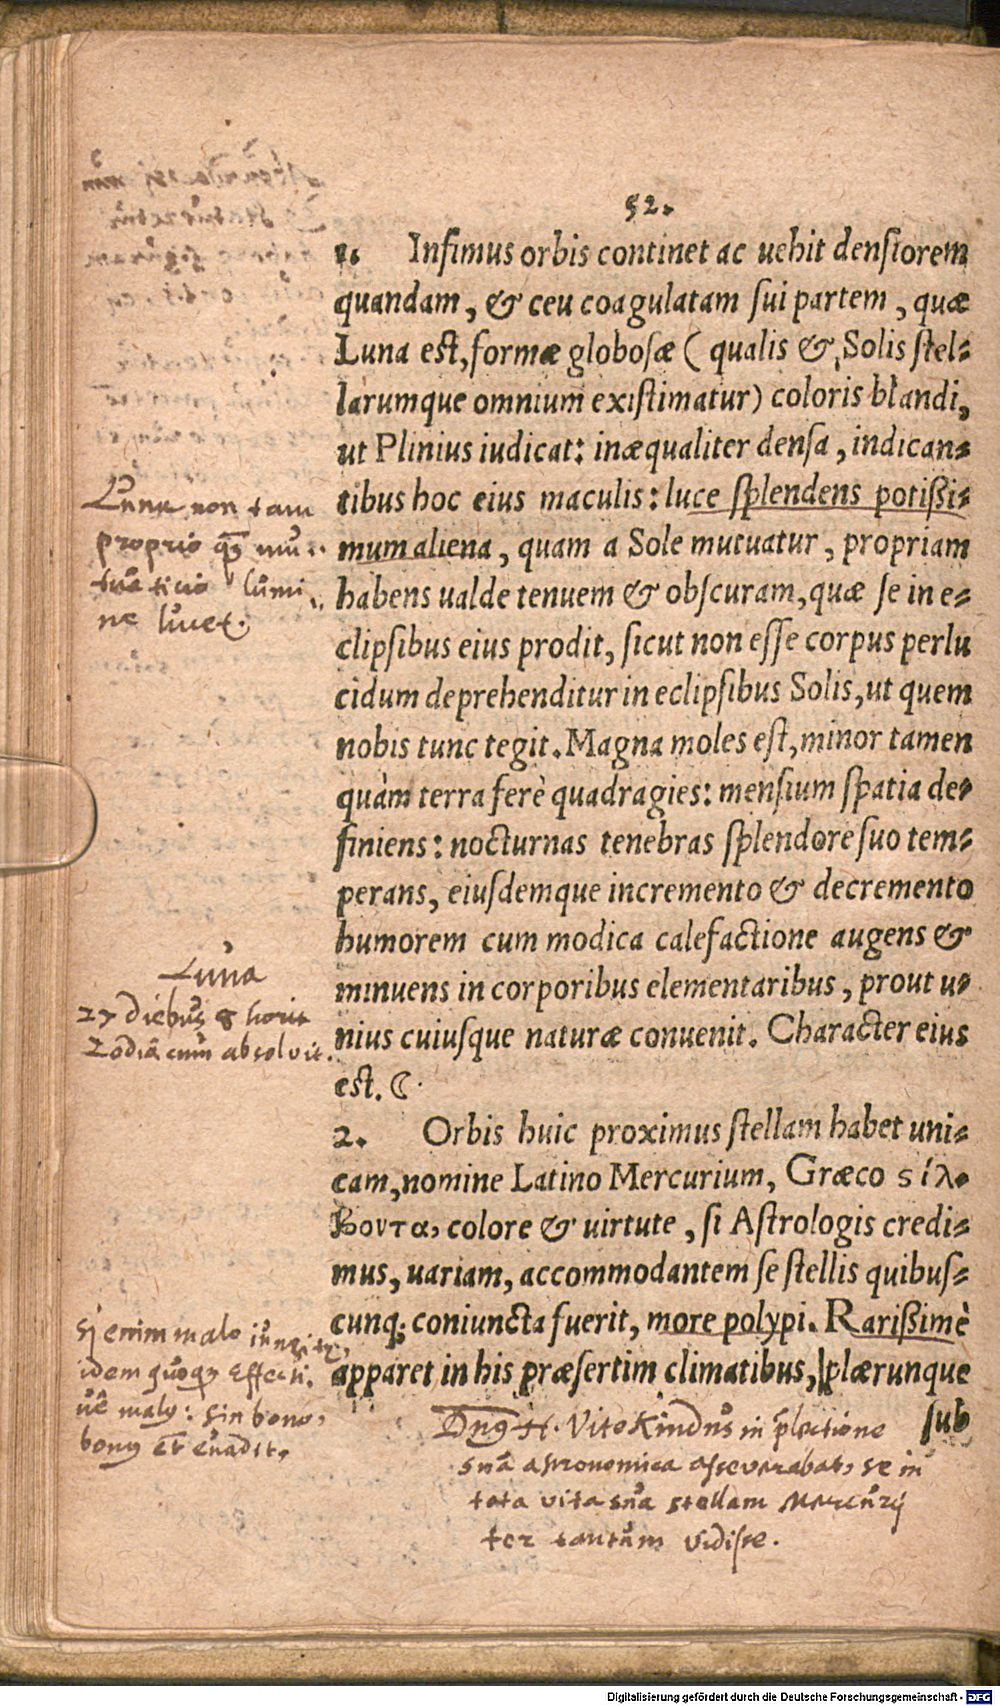 52.
1. Infimus orbis continet ac uehit densiorem
quandam, & ceu coagulatam sui partem, quæ
Luna est, formæ globosæ ( qualis & Solis stel-
larumque omnium existimatur) coloris blandi,
ut Plinius iudicat: inæqualiter densa, indican-
tibus hoc eius maculis: luce splendens potißi-
mum aliena, quam a Sole mutuatur, propriam
habens ualde tenuem & obscuram, quæ se in e-
clipsibus eius prodit, sicut non esse corpus perlu
cidum deprehenditur in eclipsibus Solis, ut quem
nobis tunc tegit. Magna moles est, minor tamen
quàm terra ferè quadragies: mensium spatia de-
finiens: nocturnas tenebras splendore suo tem-
perans, eiusdemque incremento & decremento
humorem cum modica calefactione augens &
minuens in corporibus elementaribus, prout u-
nius cuiusque naturæ conuenit. Character eius
est. ☾
2. Orbis huic proximus stellam habet uni-
cam, nomine Latino Mercurium, Græco ςίλ-
βοντα, colore & uirtute, si Astrologis credi-
mus, uariam, accommodantem se stellis quibus-
cunq; coniuncta fuerit, more polypi. Rarißimè
apparet in his præsertim climatibus, plærunque
sub
Luna non tam
proprio qȝ mu
tuaticio lumi
ne lucet.
Luna
27 Diebus 8 horis
Zodiacum absolvit.
Si enim malo iungitur,
idem quoqȝ
malus: sin bono,
bonus evadit.
Dns H. Vitekindus in plectione
sua astronomica asseverabat, se in
tota vita sua stellam Mercurij
ter tantum vidisse.
Digitalisierung gefördert durch die Deutsche Forschungsgemeinschaft - DFG